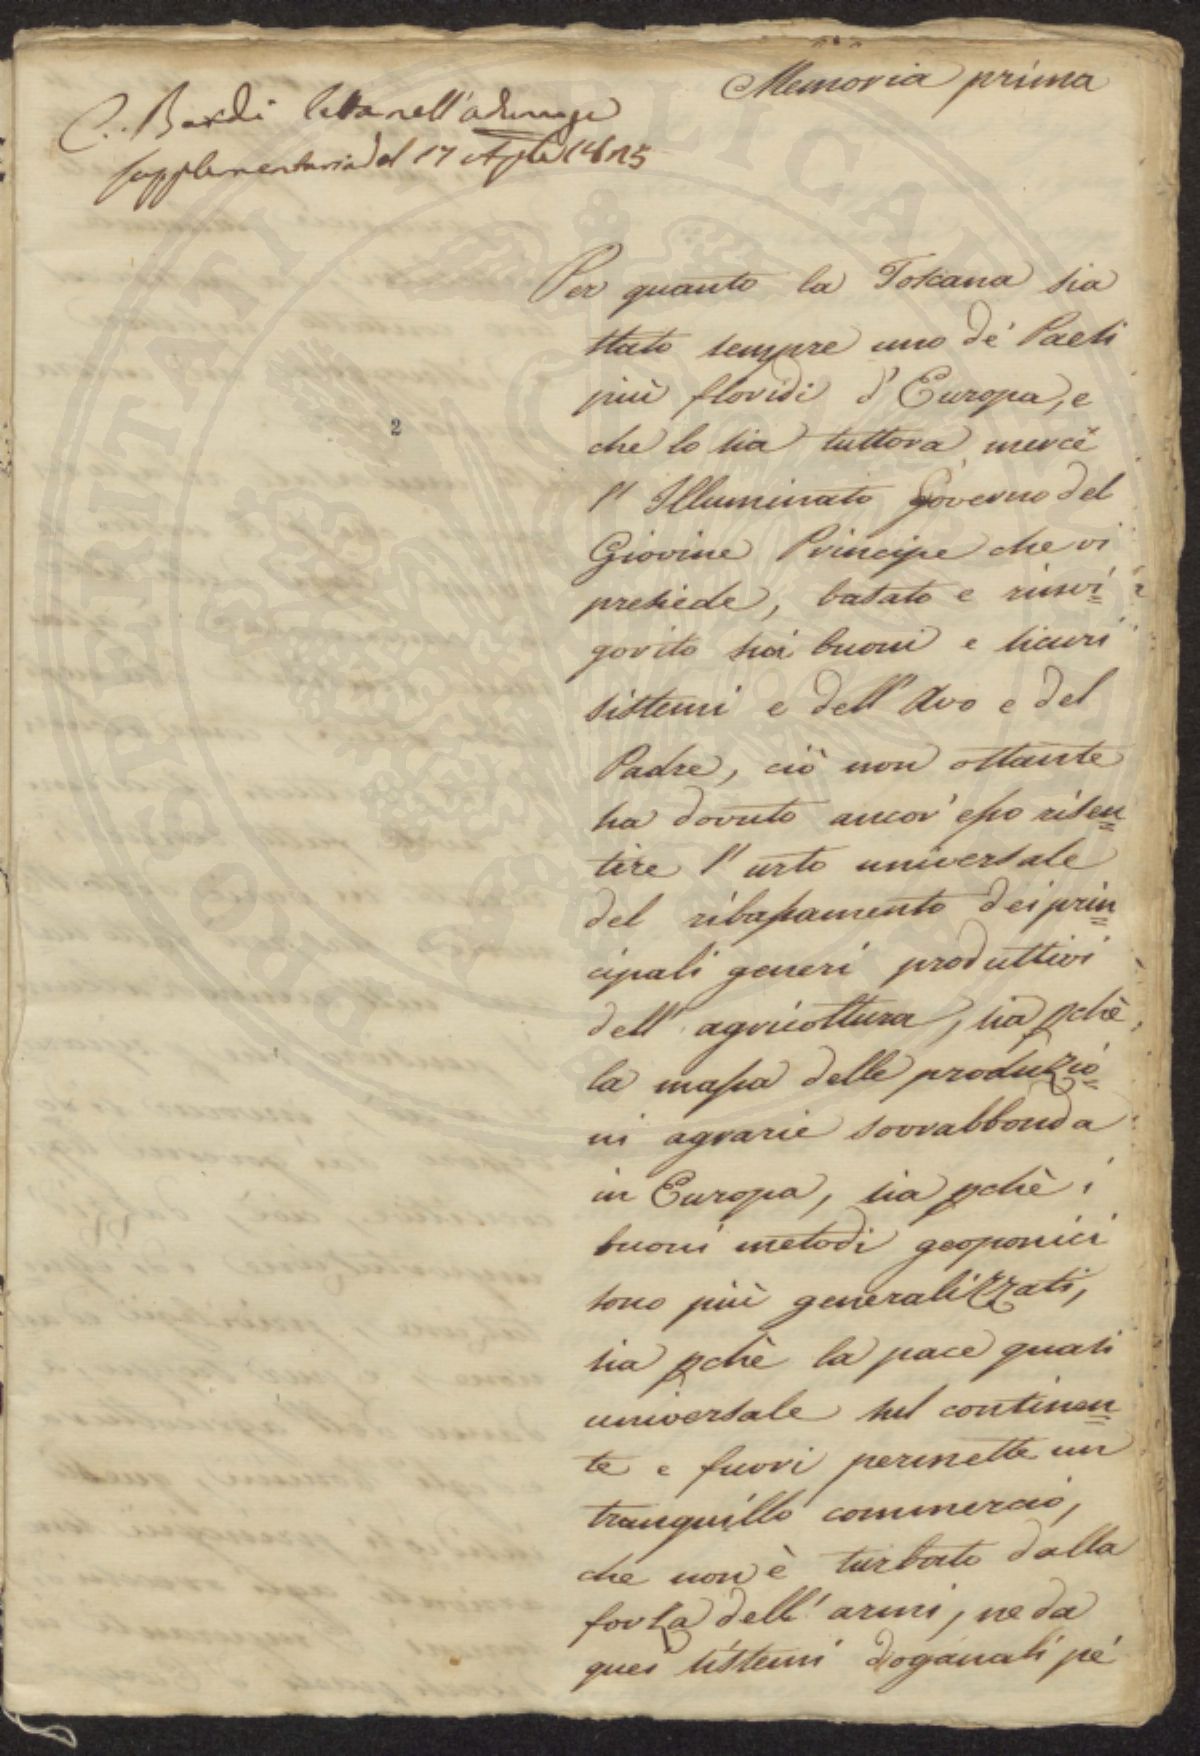 Memoria prima
C. Bardi letta nell'adunaza
supplementaria del 17 Aple
Per quanto la Toscana sia
stato sempre uno de' Paesi
più floridi d'Europa, e
che lo sia tuttora mercè
l'Illuminato Governo del
Giovine Principe che vi
presiede, basato e rinvi=
gorito sui buoni e sicuri
sistemi e dell'Avo e del
Padre, ciò non ostante
ha dovuto ancor'esso risen=
tire l'urto universale
del ribassamento dei prin=
cipali generi produttivi
dell'agricoltura, sia pchè
la massa delle produzio=
ni agrarie sovrabbonda
in Europa, sia pchè i
buoni metodi geoponici
sono più generalizzati,
sia pchè la pace quasi
universale sul continen=
te e fuori permette un
tranquillo commercio,
che non è turbato dalla
forza dell'armi, ne da
quei sistemi doganali pe'
2
PROSPERITATI PUBLICAE AUGENDAE